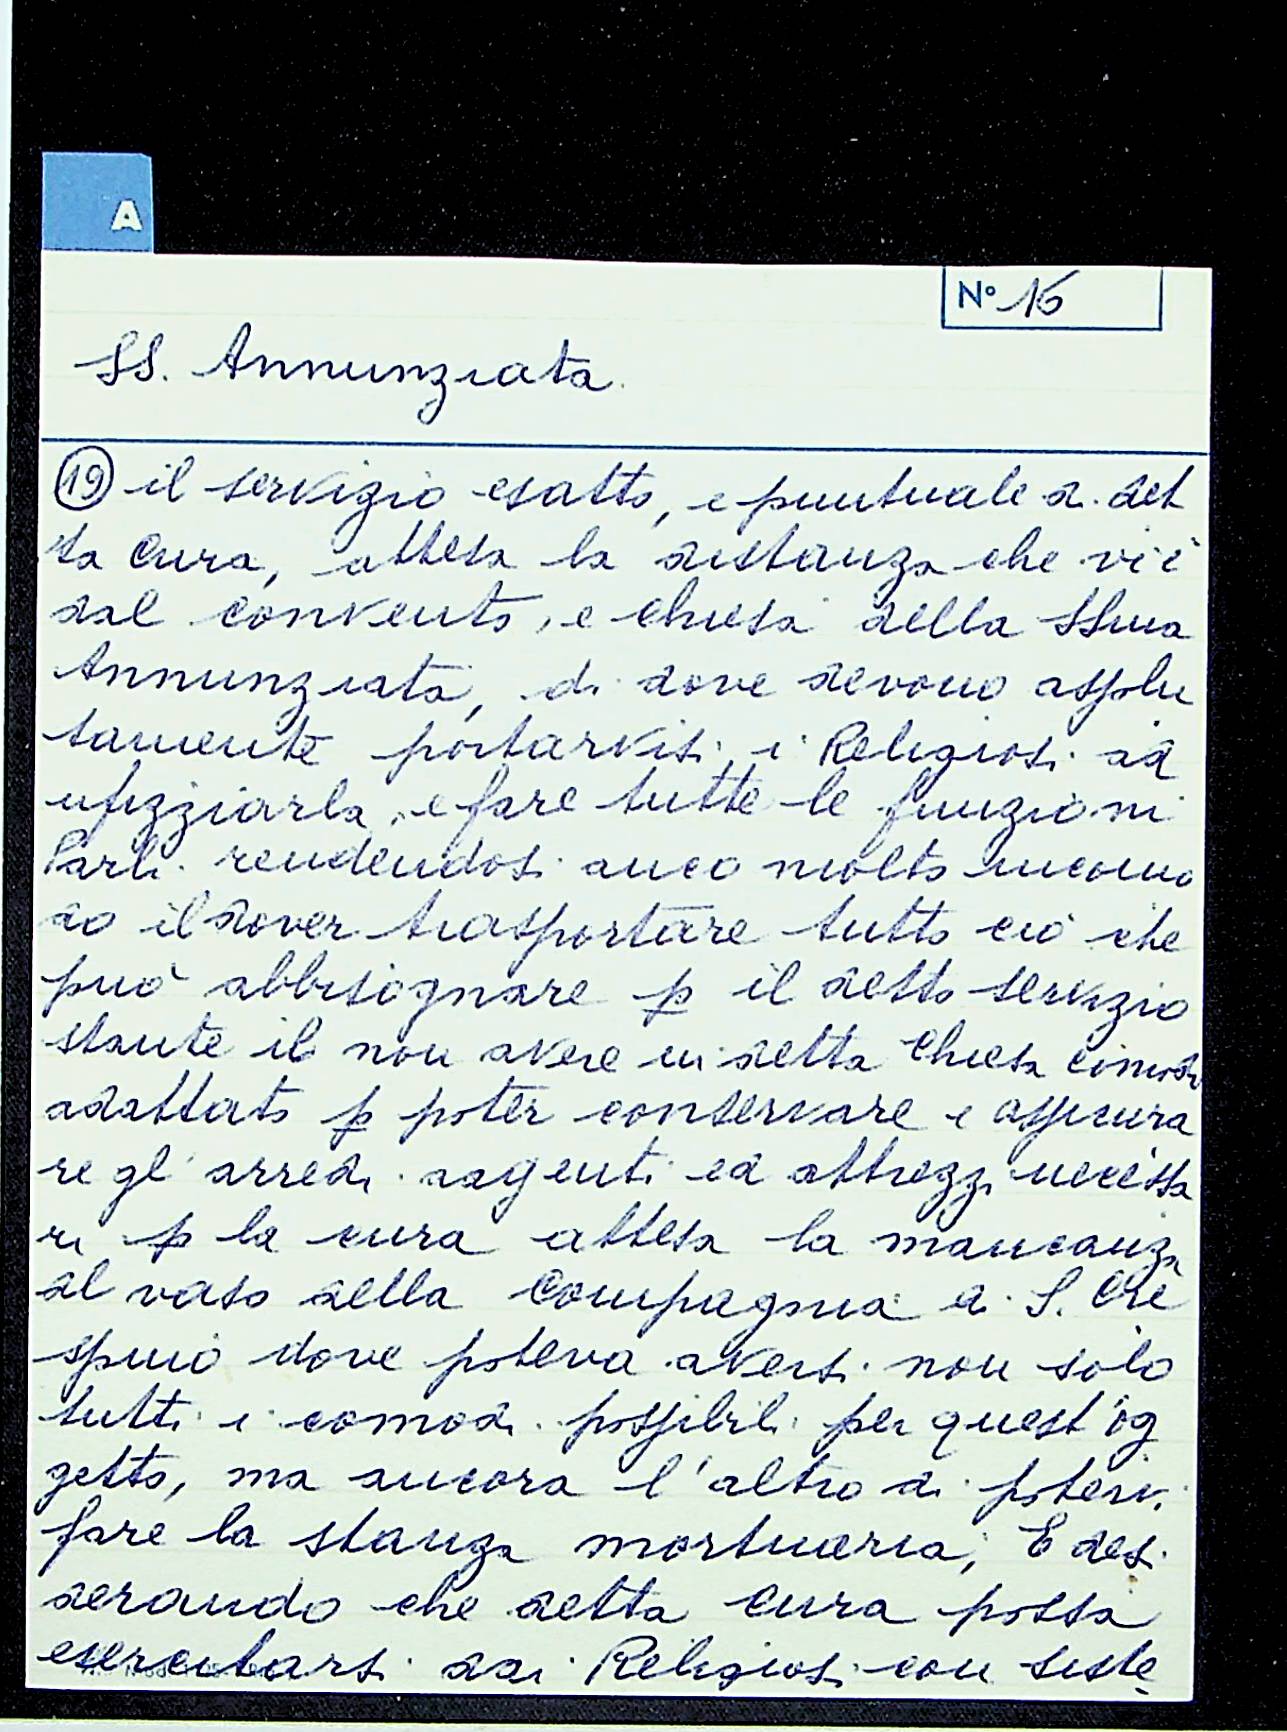 A
N° 16
SS. Annunziata.
19 il servizio esatto, e puntuale di det
ta Cura, attesa la distanza che vi è
dal convento, e chiesa della SSma
Annunziata, di dove devono assolu
tamente portarvisi i Religiosi ad
ufizziarla, e fare tutte le funzioni
Parli. rendendosi anco molto incomo
do il dover trasportare tutto ciò che
può abbisognare p il detto servizio
stante il non avere in detta Chiesa comodo
adattato p poter conservare e assicura
re gl'arredi. argenti ed attrezzi necessa
ri p la cura attesa la mancanza
del vaso della Compagnia di S. Cri
spino dove poteva aversi non solo
tutti i comodi possibili per quest'og
getto, ma ancora l'altro di potervi
fare la stanza mortuaria; E desi
derando che detta Cura possa
esercitarsi dai Religiosi con siste